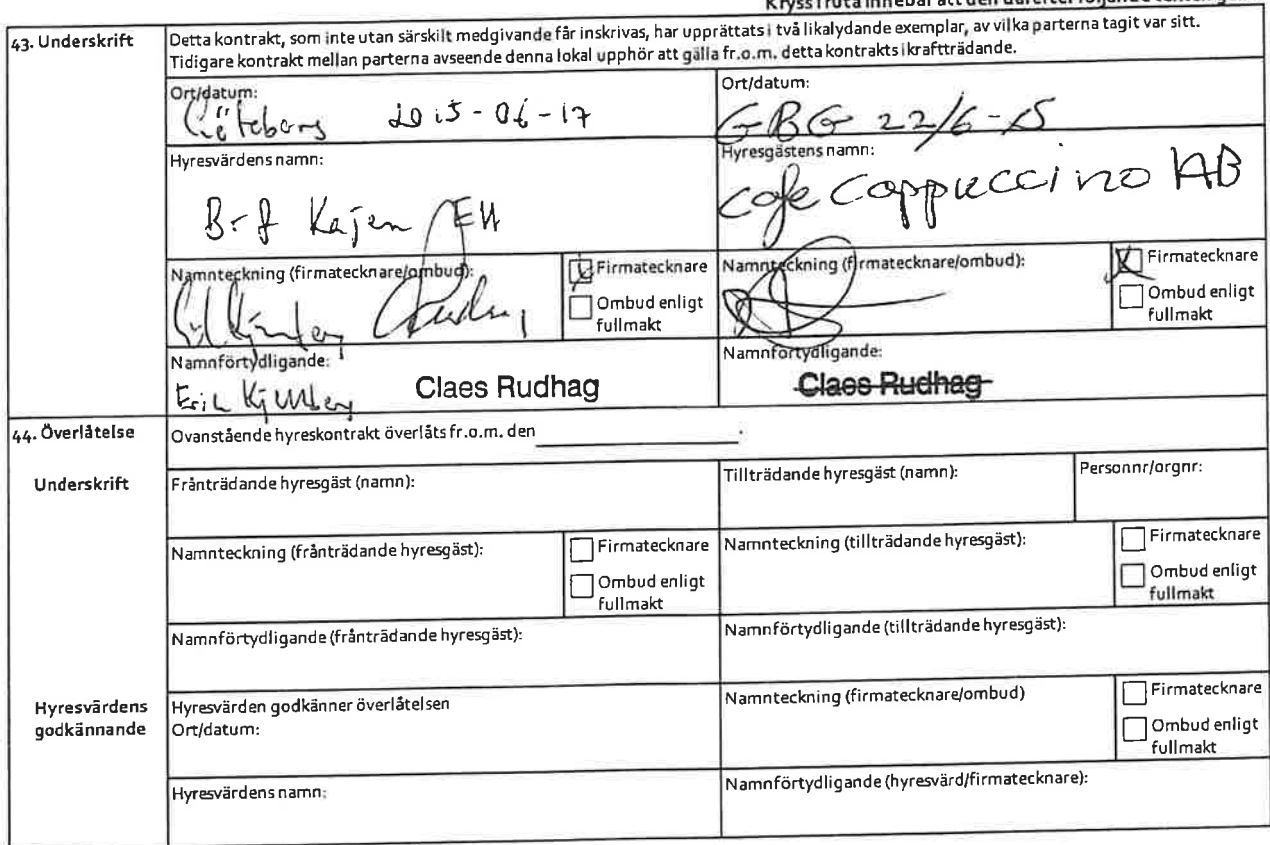 Kryss i ruta innebär att den därefter följande texten gäller
43. Underskrift
Detta kontrakt, som inte utan särskilt medgivande får inskrivas, har upprättats i två likalydande exemplar, av vilka parterna tagit var sitt.
Tidigare kontrakt mellan parterna avseende denna lokal upphör att gälla fr.o.m. detta kontrakts ikraftträdande.
Ort/datum:
Göteborg 2015-06-17
Ort/datum:
GBG 22/6-15
Hyresvärdens namn:
Brf Kajen
Hyresgästens namn:
Cafe Cappuccino AB
Namnteckning (firmatecknare/ombud):
Firmatecknare
Ombud enligt
fullmakt
Namnteckning (firmatecknare/ombud):
Firmatecknare
Ombud enligt
fullmakt
Namnförtydligande:
Erik Claes Rudhag
Namnförtydligande:
Claes Rudhag
44. Överlåtelse
Ovanstående hyreskontrakt överlåts fr.o.m. den .
Underskrift
Frånträdande hyresgäst (namn):
Tillträdande hyresgäst (namn):
Personnr/orgnr:
Namnteckning (frånträdande hyresgäst):
Firmatecknare
Ombud enligt
fullmakt
Namnteckning (tillträdande hyresgäst):
Firmatecknare
Ombud enligt
fullmakt
Namnförtydligande (frånträdande hyresgäst):
Namnförtydligande (tillträdande hyresgäst):
Hyresvärdens
godkännande
Hyresvärden godkänner överlåtelsen
Ort/datum:
Namnteckning (firmatecknare/ombud)
Firmatecknare
Ombud enligt
fullmakt
Hyresvärdens namn:
Namnförtydligande (hyresvärd/firmatecknare):